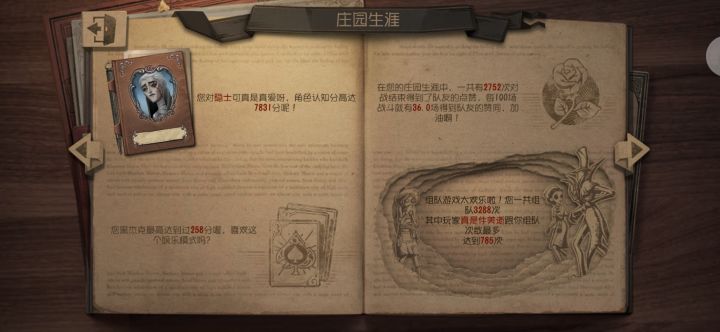 庄园生涯
您对隐士可真是真爱呀，角色认知分高达
7831分呢！
您黑杰克最高达到过258分喔，喜欢这
个娱乐模式吗？
在您的庄园生涯中，一共有2752次对
战结束得到了队友的点赞，每100场
战斗就有36.0场得到队友的赞同，加
油啊！
组队游戏大欢乐啦！您一共组
队3288次
其中玩家真是件美逝跟你组队
次数最多
达到785次